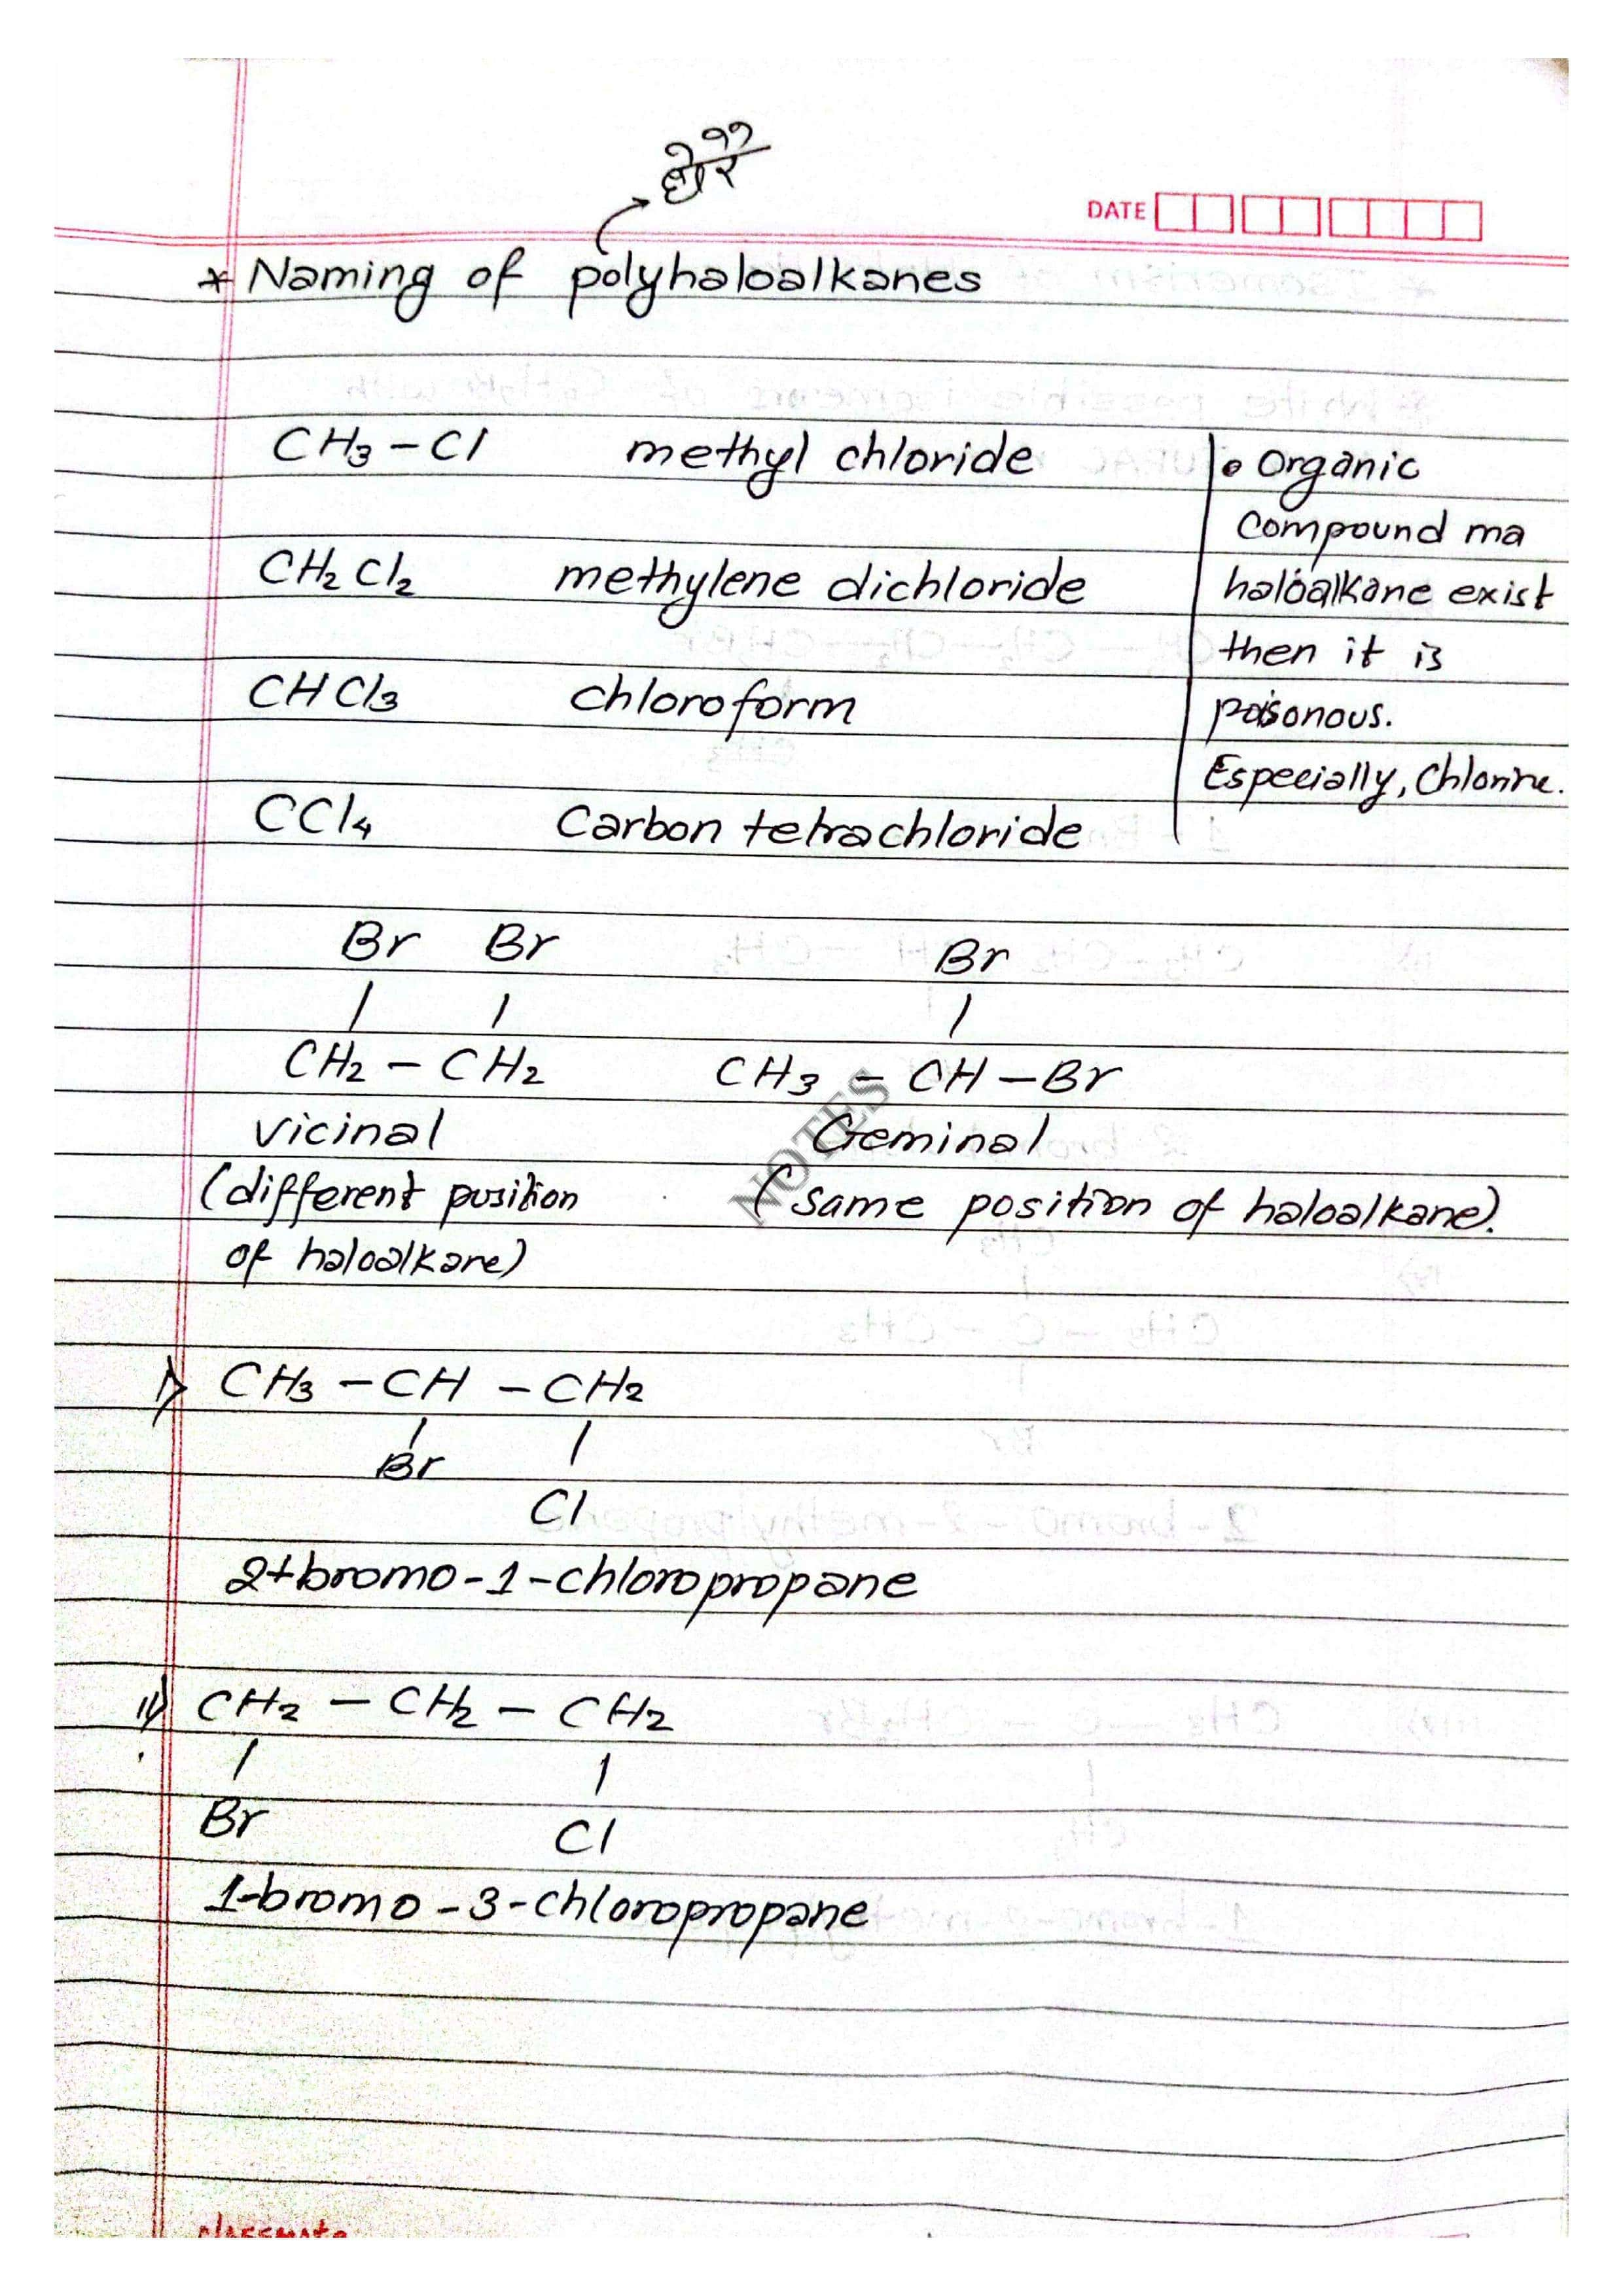 धेरै
DATE
* Naming of polyhaloalkanes
CH3 - Cl methyl chloride
CH2Cl2 methylene dichloride
CHCl3 chloroform
CCl4 Carbon tetrachloride
• Organic
Compound ma
haloalkane exist
then it is
poisonous.
Especially, Chlorine.
Br Br
| |
CH2 - CH2
Vicinal
(different position
of haloalkane)
Br
|
CH3 - CH - Br
Geminal
(same position of haloalkane).
NOTES
i) CH3 - CH - CH2
| |
Br
Cl
2-bromo-1-chloropropane
ii) CH2 - CH2 - CH2
| |
Br Cl
1-bromo-3-chloropropane
classmate